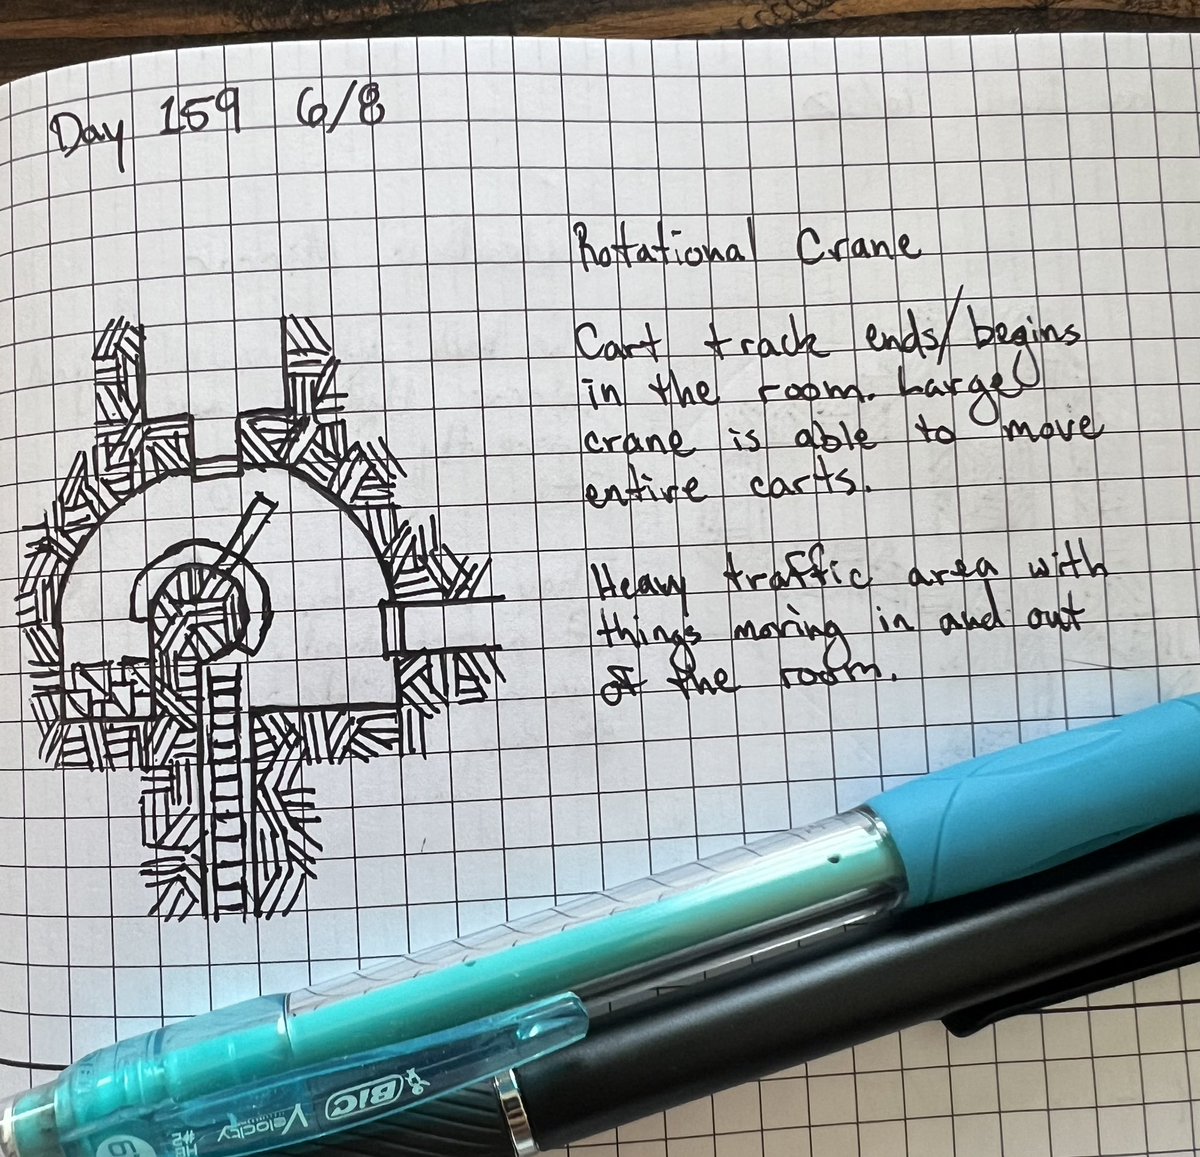 Day 159 6/8
Rotational Crane
Cart track ends/begins
in the room. Large
crane is able to move
entire carts.
Heavy traffic area with
things moving in and out
of the room.
BIC
Velocity